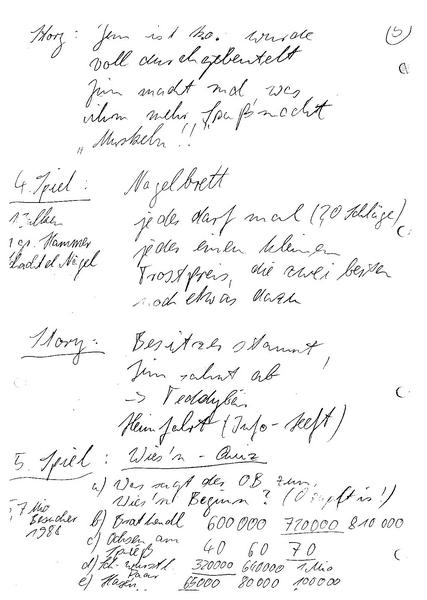 Story: Jim ist k.o. wurde (5)
voll durchgebeutelt
Jim macht mal was
ihm mehr Spaß macht
"Muskeln!!"
4. Spiel: Nagelbrett
jeder darf mal (20 Schläge)
1 gr. Hammer jeder einen kleinen
Nägel Trostpreis, die zwei besten
noch etwas davon
Story: Besitzer stammt,
Jim sahnt ab
-> Teddybär
Heimfahrt (Info-Heft)
5. Spiel: Wies'n - Quiz
a) Was sagt der OB zum
Wies'n Beginn? (O'zapft is!)
7 Mio Besucher 1988
b) Brathendl 600000 720000 810000
c) Ochsen am Spieß 40 60 70
d) Paar 320000 640000 1 Mio
e) 65000 80000 100000